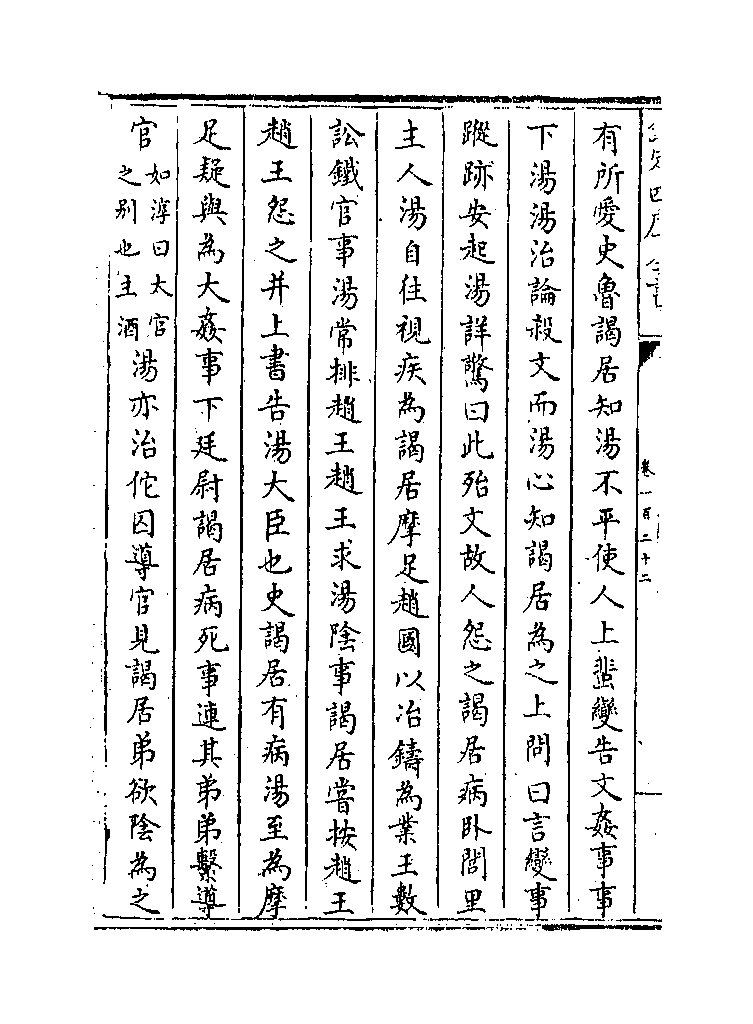 欽定四庫全書
卷一百二十二
有所愛史魯謁居知湯不平使人上蜚變告文姦事事
下湯湯治論殺文而湯心知謁居為之上問曰言變事
蹤跡安起湯詳驚曰此殆文故人怨之謁居病卧閭里
主人湯自往視疾為謁居摩足趙國以冶鑄為業王數
訟鐵官事湯常排趙王趙王求湯陰事謁居嘗按趙王
趙王怨之并上書告湯大臣也史謁居有病湯至為摩
足疑與為大姦事下廷尉謁居病死事連其弟弟繫導
官如淳曰太官之别也主酒湯亦治佗囚導官見謁居弟欲陰為之